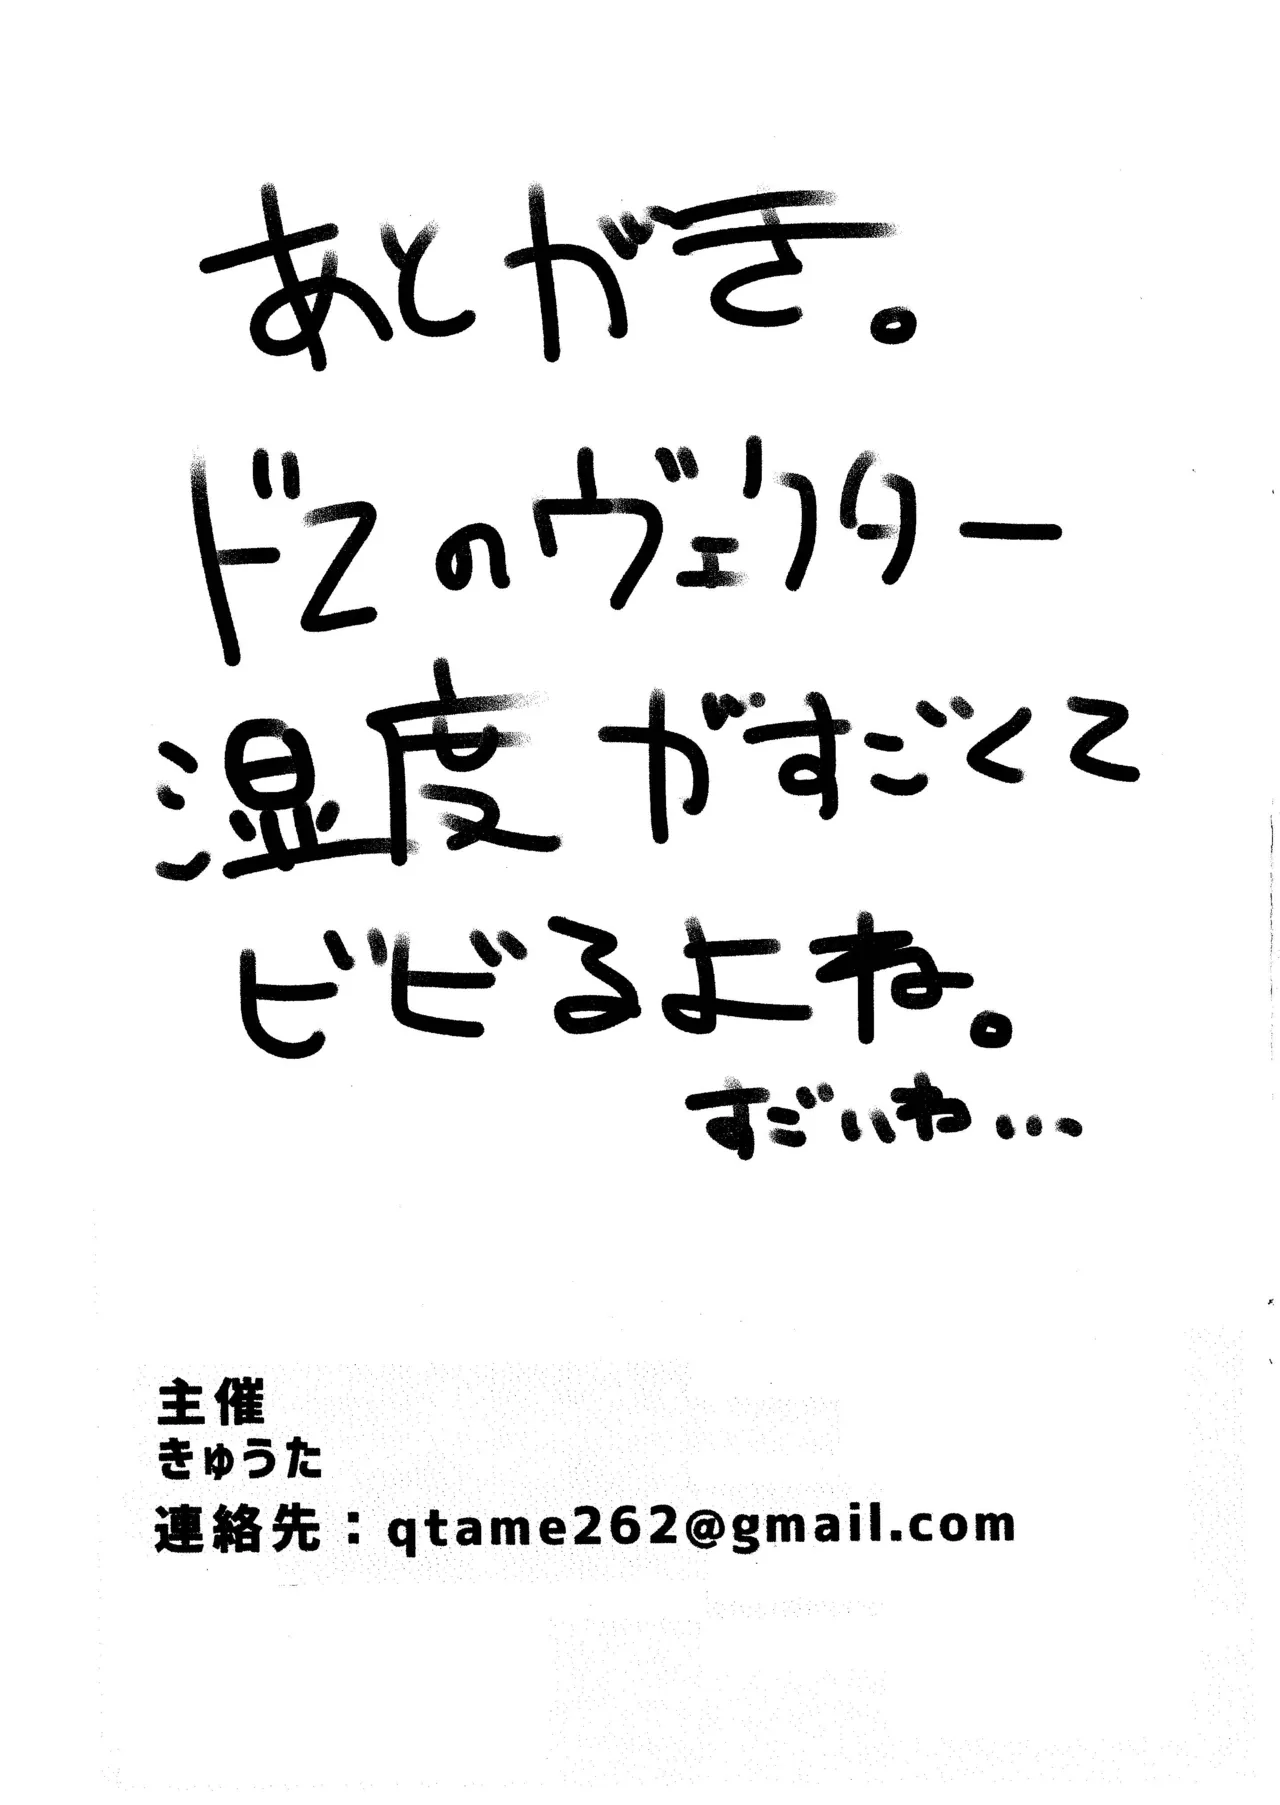 あとがき。
ドZのヴェクター
湿度がすごくて
ビビるよね。
すごいわ…
主催
きゅうた
連絡先：qtame262@gmail.com